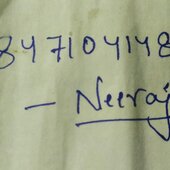 847104148
- Neeraj